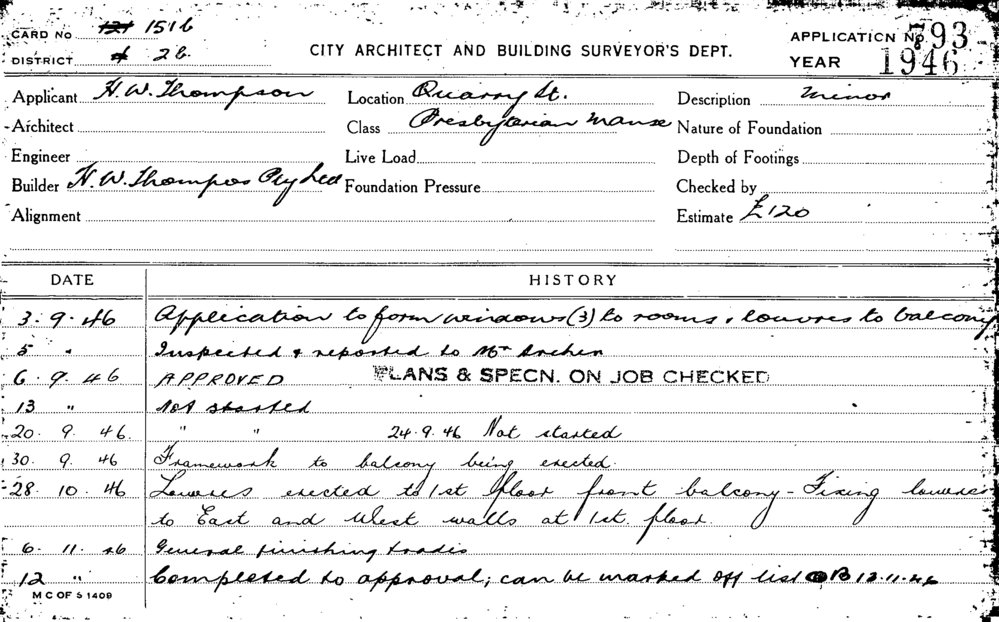 CARD No 121 1516
DISTRICT 26
CITY ARCHITECT AND BUILDING SURVEYOR'S DEPT.
APPLICATION No 793
YEAR 1946
Applicant H. W. Thompson
Location Quarry St.
Description Minor
Architect
Class Presbyterian Manse
Nature of Foundation
Engineer
Live Load
Depth of Footings
Builder H. W. Thompson Pty Ltd
Foundation Pressure
Checked by
Alignment
Estimate £120
DATE HISTORY
3. 9. 46 Application to form windows (3) to rooms & louvres to balcony
5 " Inspected & reported to Mr Archer
6. 9. 46 APPROVED PLANS & SPECN. ON JOB CHECKED
13 " Not started
20. 9. 46. " " 24.9.46 Not started
30. 9. 46 Framework to balcony being erected.
28. 10. 46 Louvres erected to 1st floor front balcony - Fixing louvres
to East and West walls at 1st. floor.
6. 11. 46 General finishing trades
12 " Completed to approval; can be marked off list 12.11.46
M C OF S 1409